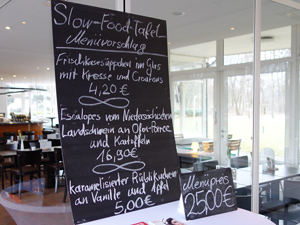 Slow-Food-Tafel
Menüvorschlag
Frischkäsesüppchen im Glas
mit Kresse und Croutons
4,20 €
Eskalopes vom Niedersächsischen
Landschwein an
und Kartoffeln
16,90 €
karamelisierter Rüblikuchen
an Vanille und Apfel
5,00 €
Menüpreis
25,00 €